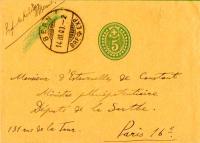 BERN
14.III.03.-2
5
Monsieur d'Estournelles de Constant
Ministre plénipotentiaire
Député de la Sarthe.
131 rue de la Tour.
Paris 16e.